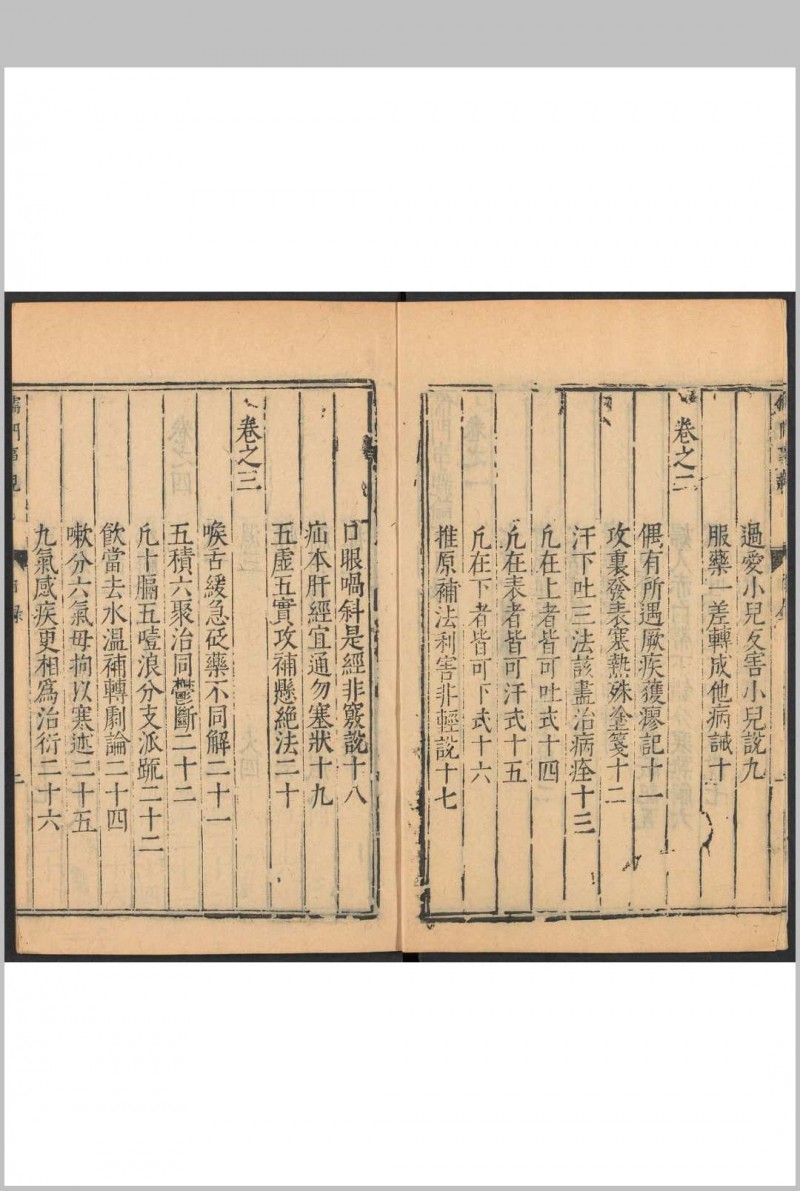 過愛小兒反害小兒說九
服藥一差轉成他病誡十
卷之二
偶有所遇厥疾獲瘳記十一
攻裏發表寒熱殊塗箋十二
汗下吐三法該盡治病痊十三
凢在上者皆可吐式十四
凢在表者皆可汗式十五
凢在下者皆可下式十六
推原補法利害非輕說十七
口眼喎斜是經非竅說十八
疝本肝經宜通勿塞狀十九
五虛五實攻補懸絕法二十
卷之三
喉舌緩急砭藥不同解二十一
五積六聚治同欝斷二十二
凢十膈五噎浪分支派䟽二十二
飲當去水溫補轉劇論二十四
嗽分六氣毋拘以寒述二十五
九氣感疾更相爲治衍二十六